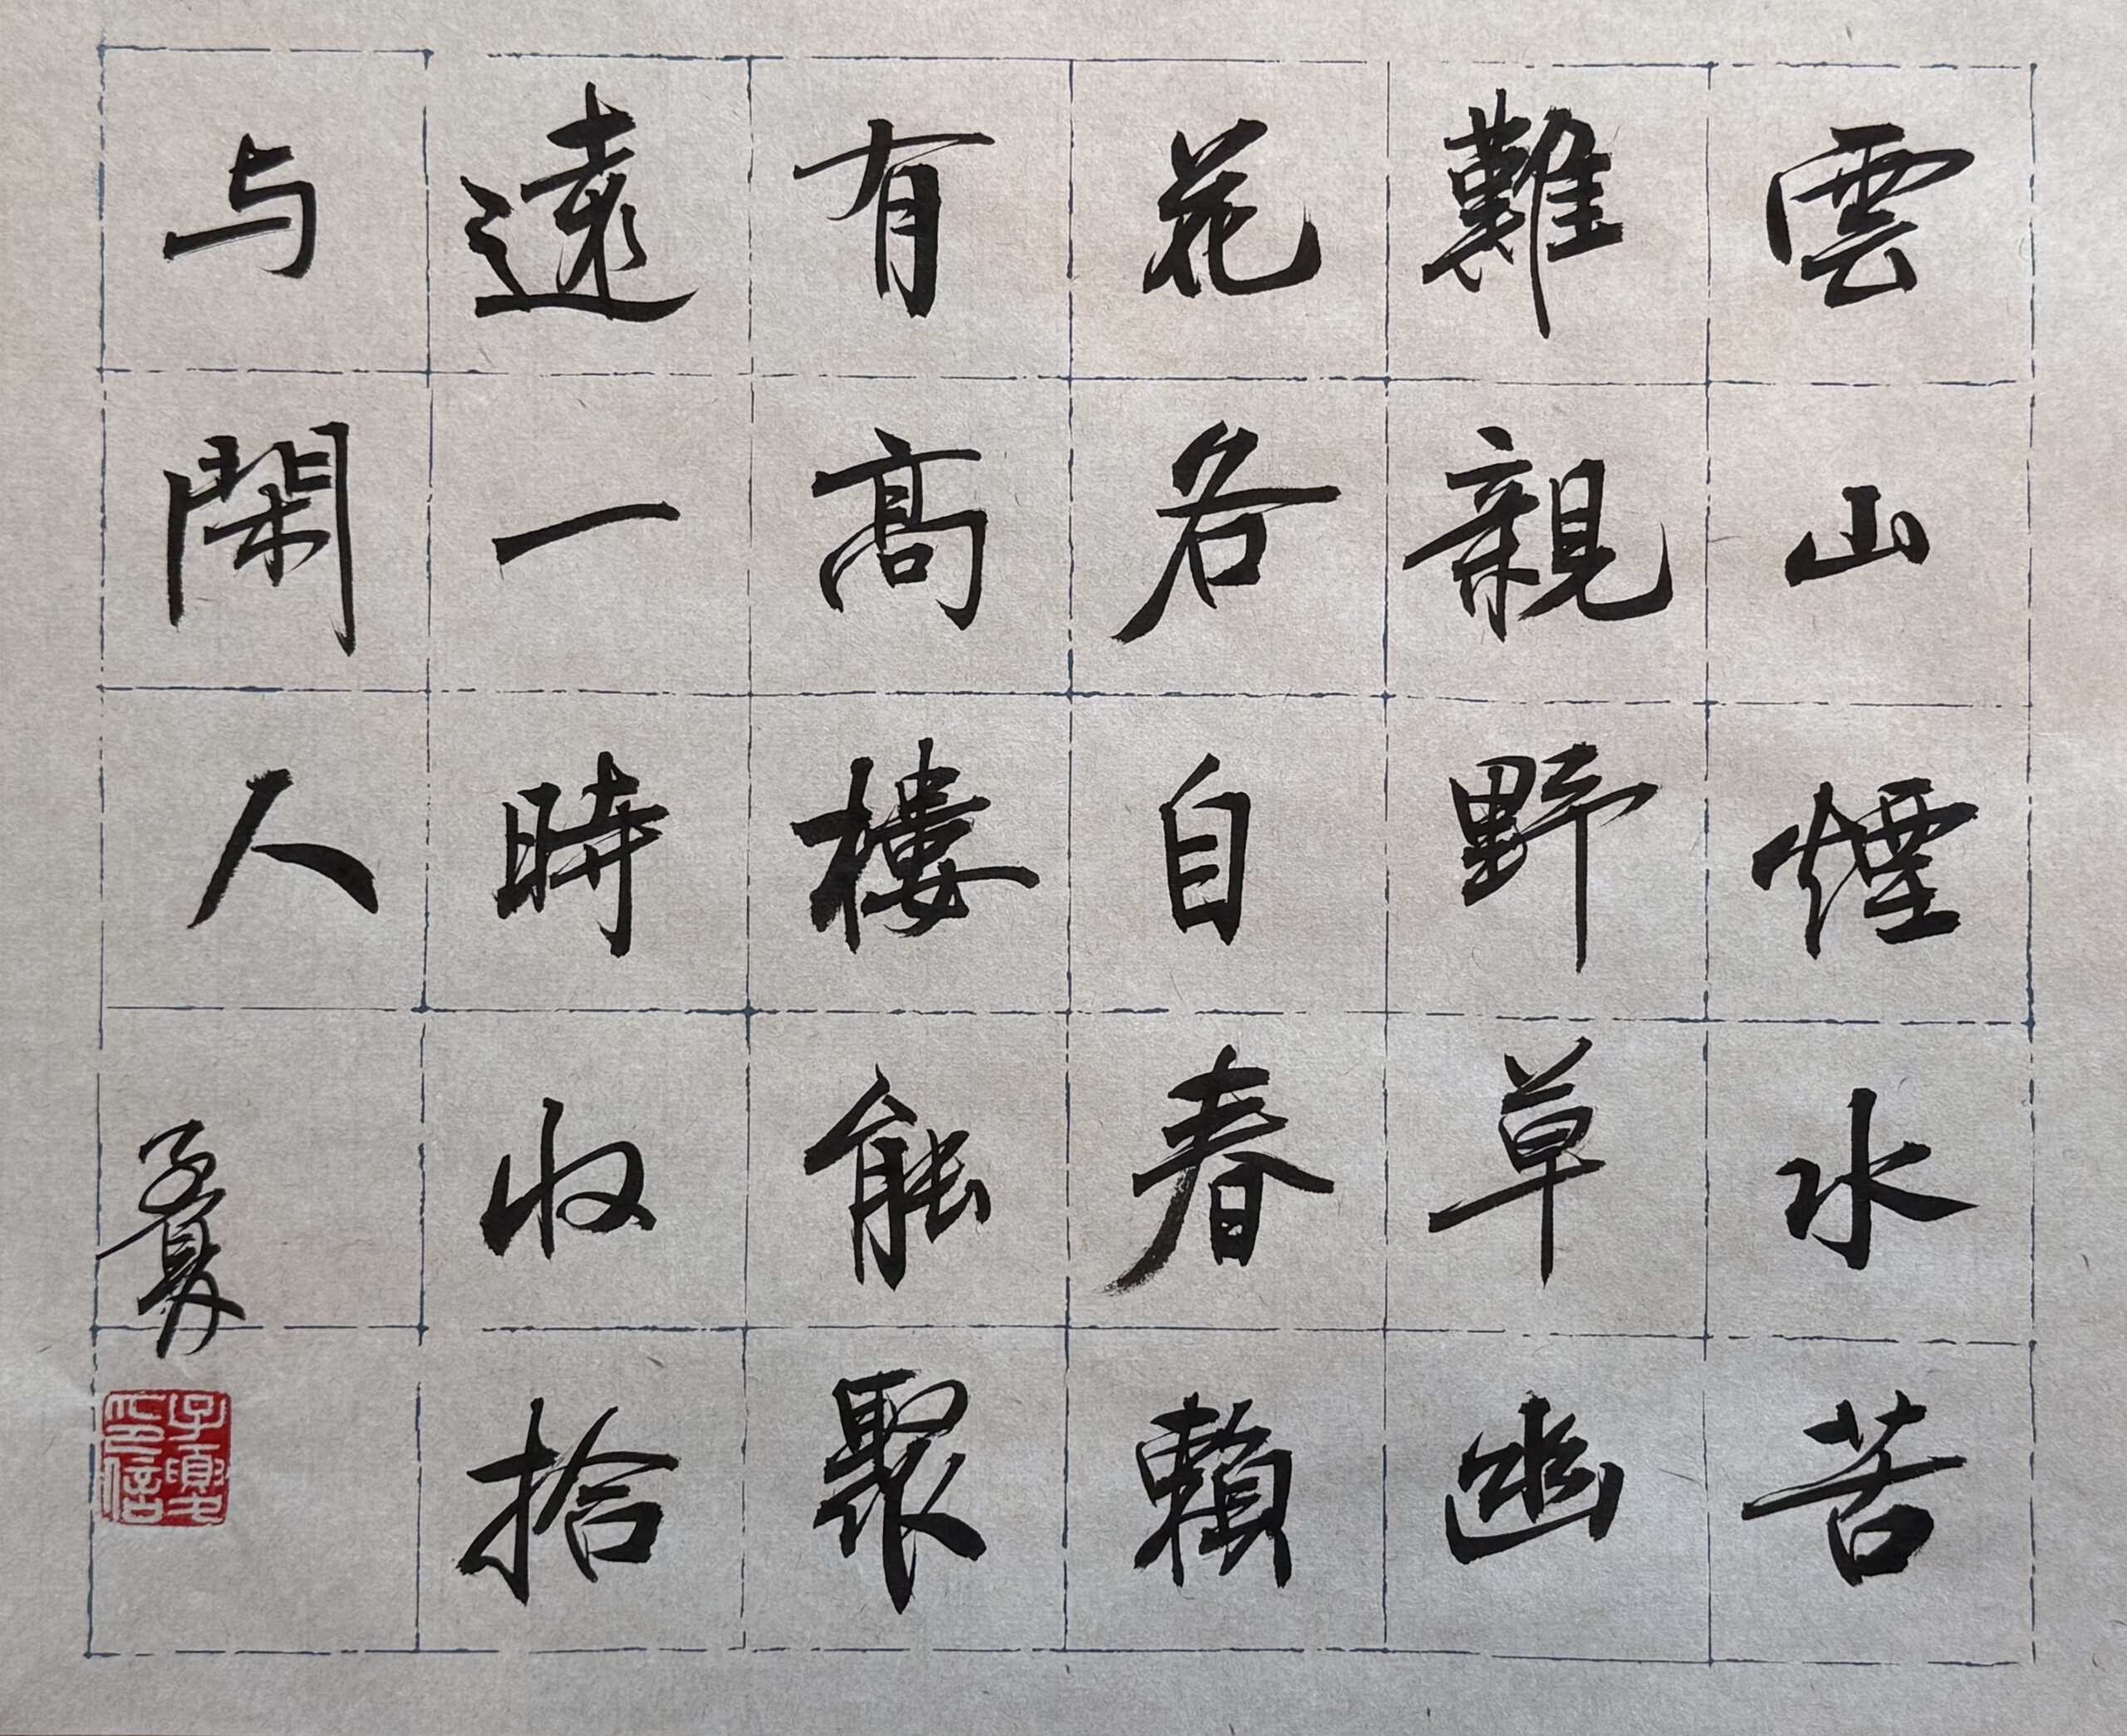 雲山煙水苦
難親野草幽
花各自春賴
有高樓能聚
遠一時收拾
与閑人
子夏
子夏印信